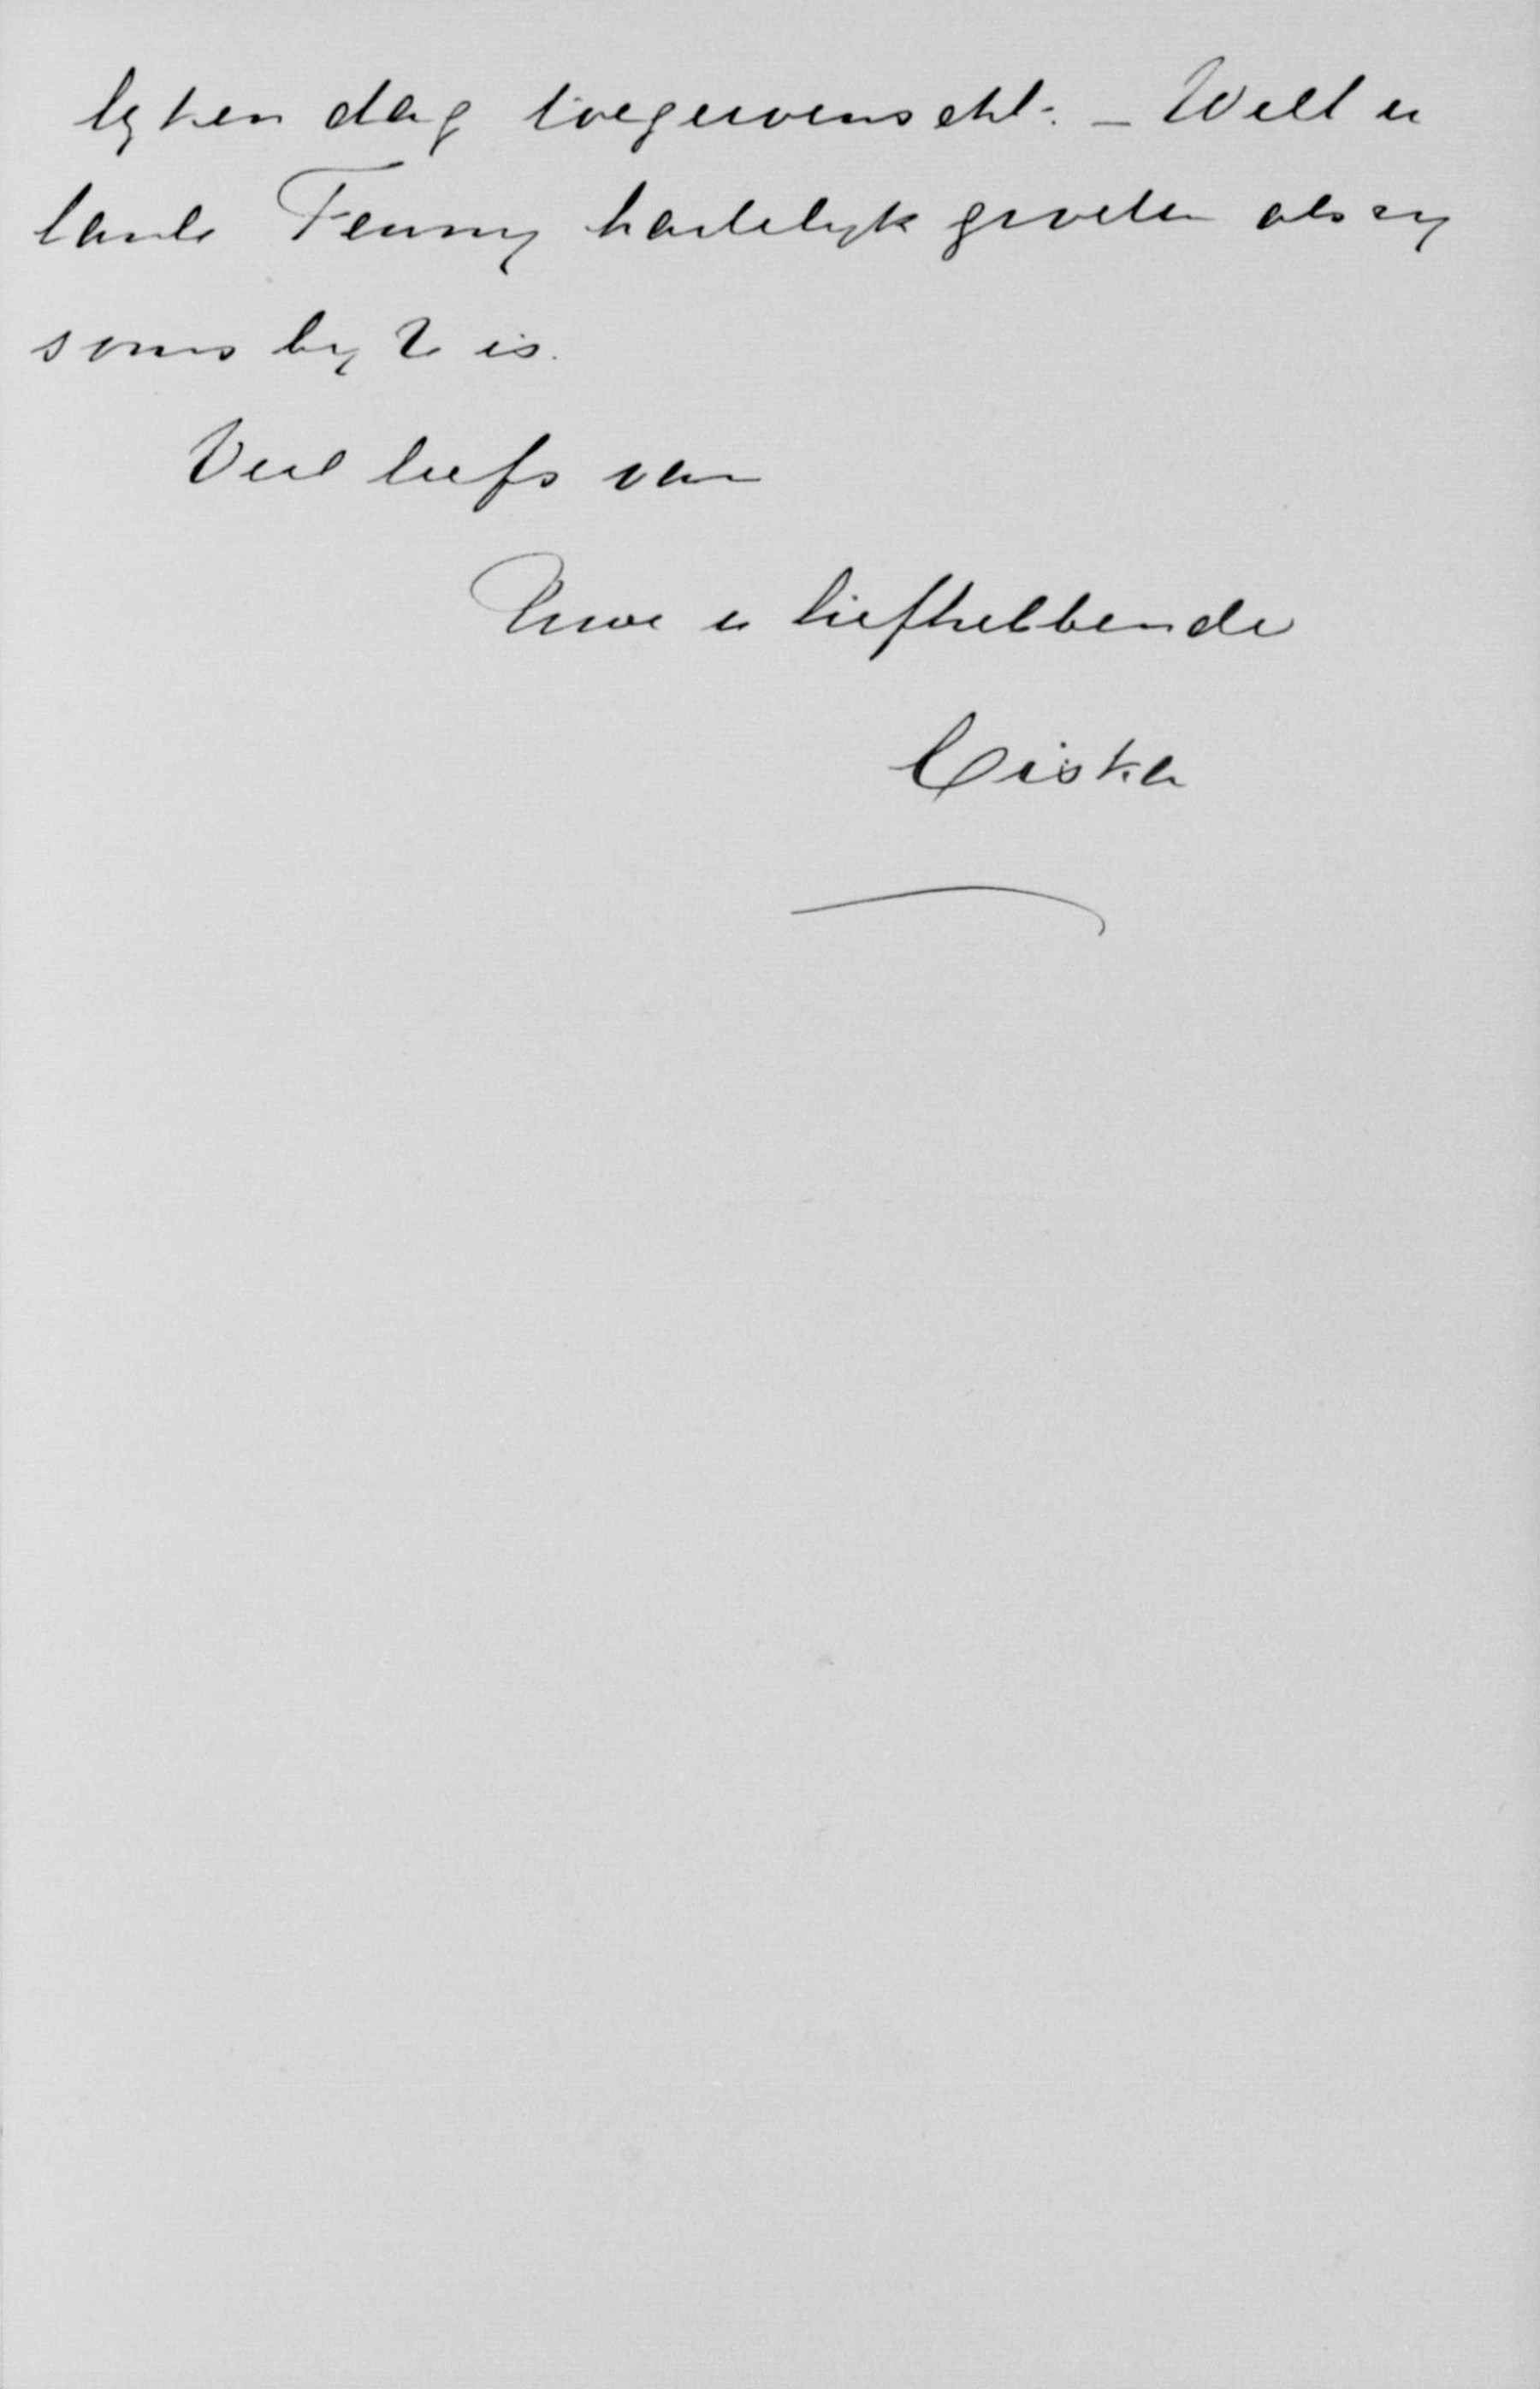 lyken dag toegewenscht. – Wilt u
tante Fenny hartelyk groeten als zy
soms by U is.
Veel liefs van
Uwe u liefhebbende
Ciska